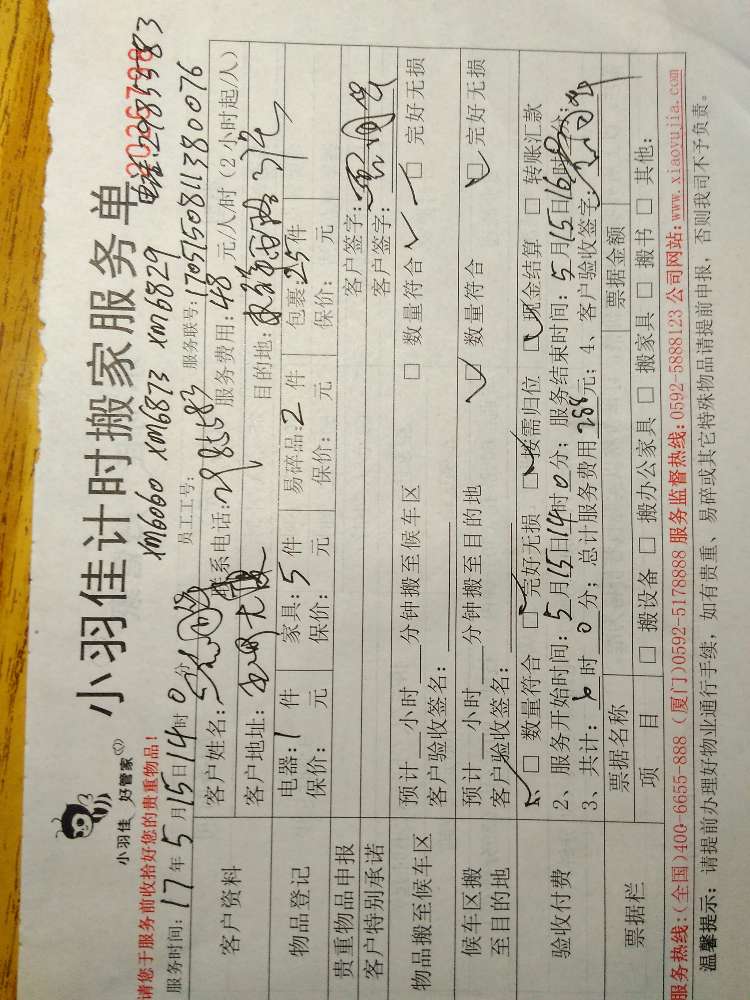 小羽佳 好管家
小羽佳计时搬家服务单
请您于服务前收拾好您的贵重物品!
xm6060 xm6873 xm6829
2985583
服务时间: 17 年 5 月 15 日 14 时 0 分
员工工号:
服务联号: 1705150811380076
客户资料
客户姓名:
联系电话: 2985583
服务费用: 48 元/人/时(2小时起/人)
客户地址:
目的地:
物品登记
电器: 1 件 家具: 5 件 易碎品: 2 件 包裹: 25 件
保价: 元 保价: 元 保价: 元 保价: 元
贵重物品申报 客户签字:
客户特别承诺 客户签字:
物品搬至候车区
预计 小时 分钟搬至候车区 □ 数量符合 ✓ □ 完好无损 ✓
客户验收签名:
候车区搬至目的地
预计 小时 分钟搬至目的地 □ 数量符合 ✓ □ 完好无损 ✓
客户验收签名:
验收付费
□ 数量符合 □ 完好无损 □ 按需归位 □ 现金结算 □ 转账汇款
2、服务开始时间: 5 月 15 日 14 时 0 分; 服务结束时间: 5 月 15 日 16 时 分;
3、共计: 6 时 0 分; 总计服务费用 288 元; 4、客户验收签字:
票据栏
票据名称 票据金额
项 目 □ 搬设备 □ 搬办公家具 □ 搬家具 □ 搬书 □ 其他:
服务热线:(全国)400-6655-888 (厦门)0592-5178888 服务监督热线:0592-5888123 公司网站:www.xiaoyujia.com
温馨提示: 请提前办理好物业通行手续, 如有贵重、易碎或其它特殊物品请提前申报, 否则我司不予负责。